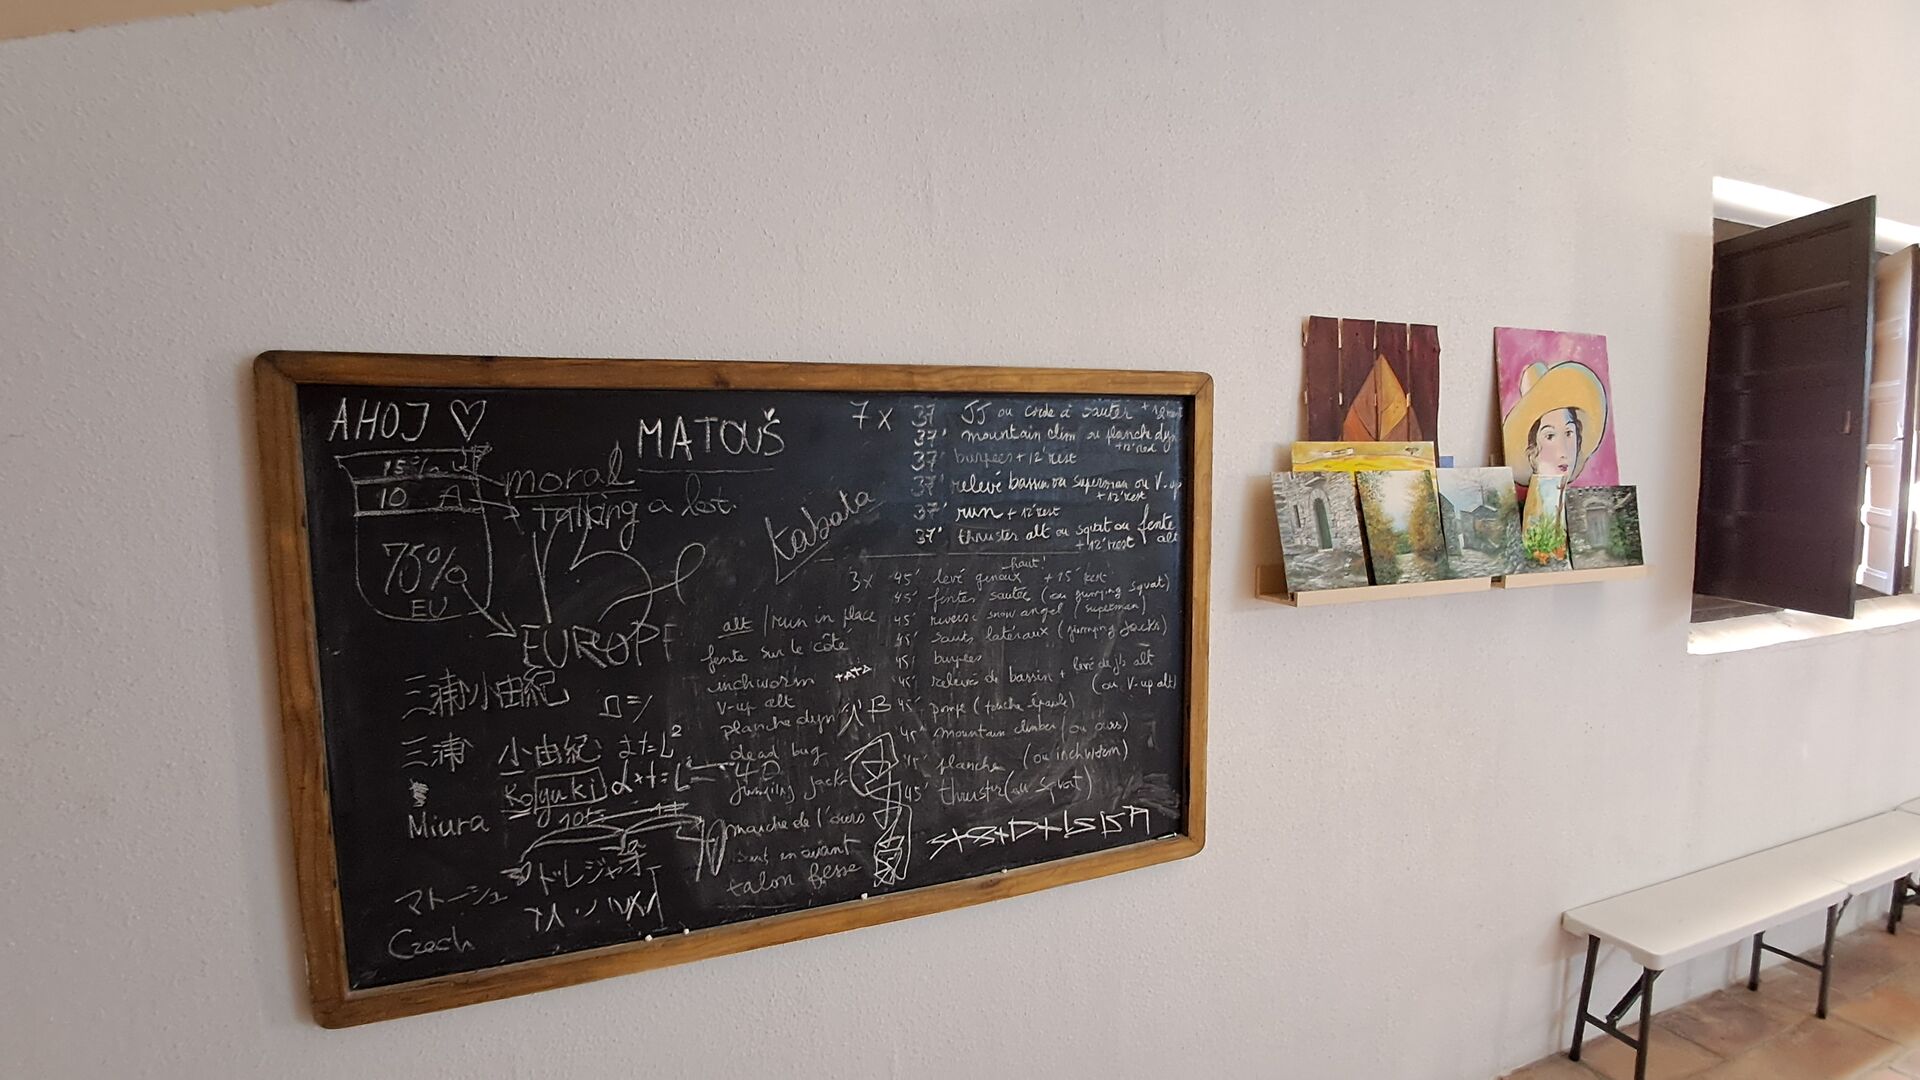 AHOJ ♡
MATOUŠ
15%
10 A
moral
+ Talking a lot.
75%
EU
EUROPE
三浦小由紀
三浦 小由紀
Koyuki
Miura
マトーシュ
ドレジャオ
Czech
tabata
7x 37' JJ ou corde à sauter + 12' rest
37' mountain clim ou planche dyn
+ 12' rest
37' burpees + 12' rest
37' relevé bassin ou superman ou V-up
+ 12' rest
37' run + 12' rest
37' thruster alt ou squat ou fente alt
+ 12' rest
3x 45' levé genoux haut + 15' rest
45' fentes sautées (ou jumping squat)
45' reverse snow angel (superman)
45' sauts latéraux (jumping Jacks)
45' burpees
45' relevé de bassin + levé de jb alt
(ou V-up alt)
45' pompe (touche épaule)
45' mountain climber (ou ours)
45' planche (ou inchworm)
45' thruster (ou squat)
alt / run in place
fente sur le côté
inchworm
V-up alt
planche dyn
dead bug
jumping jacks
marche de l'ours
saut en avant
talon fesse